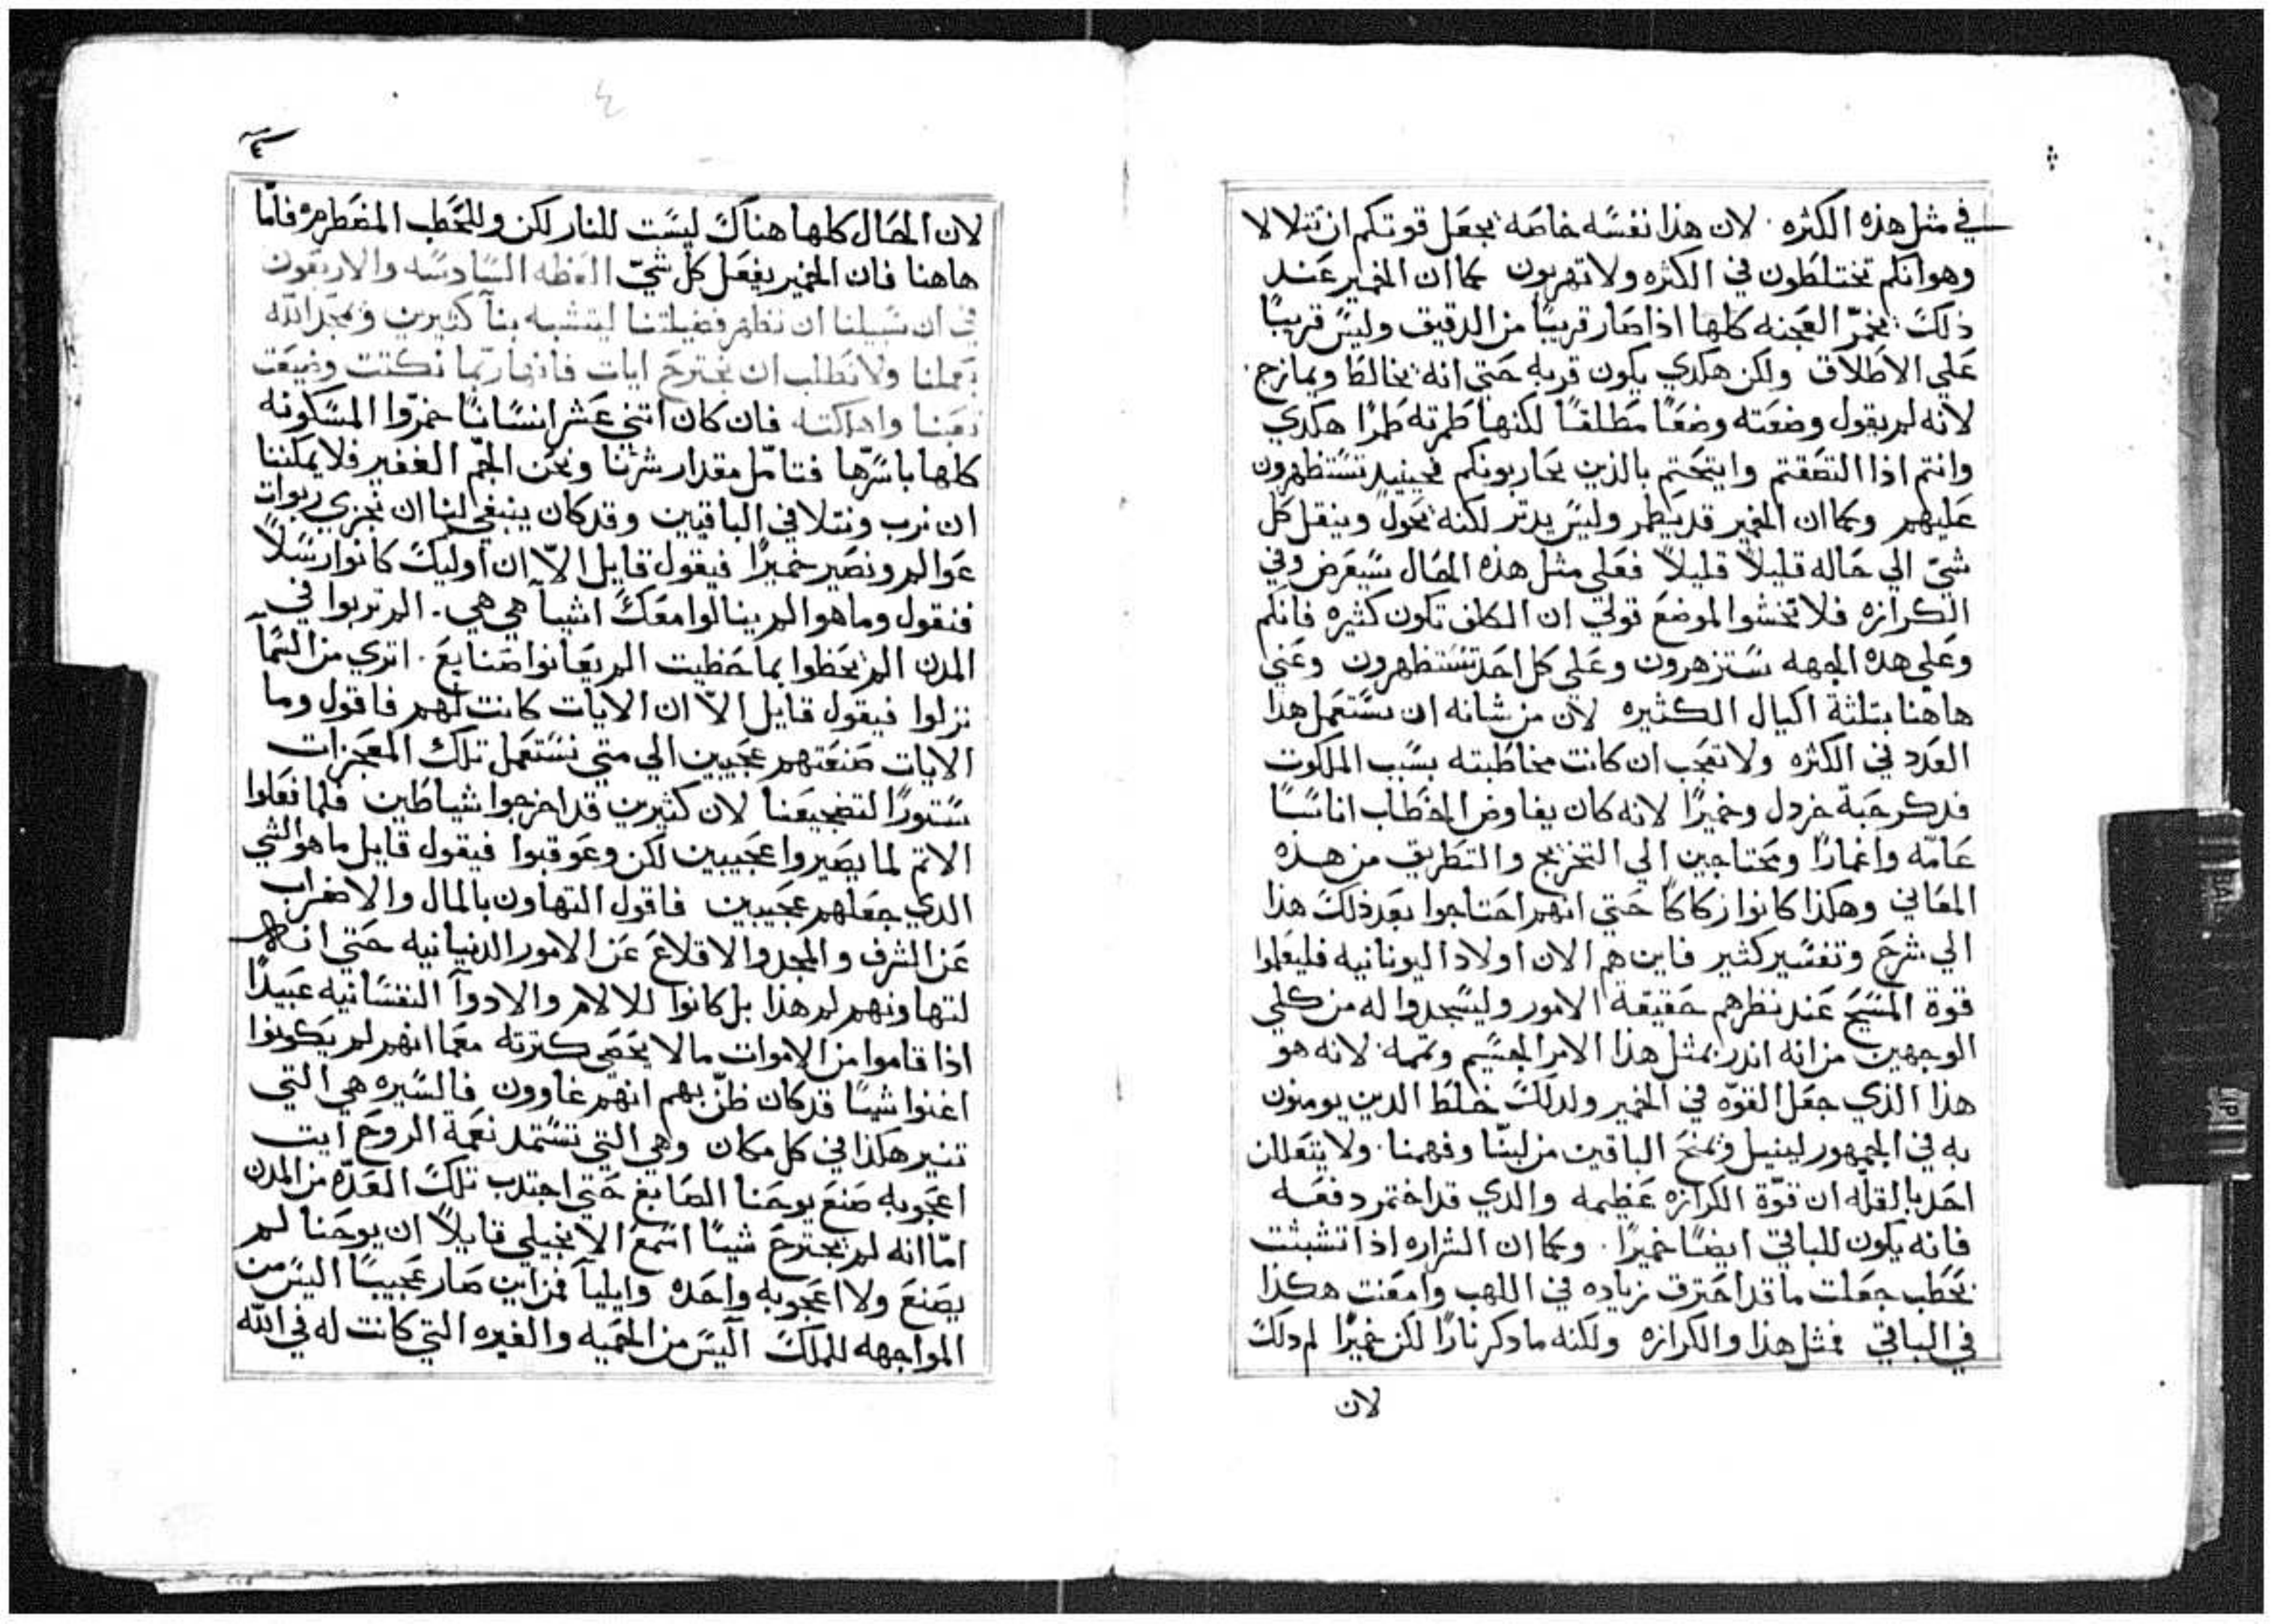 في مثل هذه الكثره . لان هذا نفسه خاصه يجعل قوتكم ان تتلالا
وهو انكم تختلطون في الكثره ولا تهربون كما ان الخمير عند
ذلك يخمر العجنه كلها اذا صار قريبا من الدقيق وليس قريبا
علي الاطلاق ولكن هكدي يكون قربه حتي انه يخالط ويمازج .
لانه لم يقول وضعته وضعا مطلقا لكنها طمرته طمرا هكدي
وانتم اذا التصقتم وايتحتم بالذين يحاربونكم فحينيد تستظهرون
عليهم وكما ان الخمير قد يطمر وليس يدتر لكنه يحول وينقل كل
شي الي حاله قليلا قليلا فعلي مثل هذه الحال سيعرض وفي
الكرازه فلا تخشوا لموضع قولي ان الكلف تكون كثيره فانكم
وعلي هده الجهه ستزهرون وعلي كل احد تستظهرون وعني
هاهنا بتلثة اكيال الكثيره لان من شانه ان يستعمل هدا
العدد في الكثره ولا تعجب ان كانت مخاطبته بسبب الملكوت
فدكر حبة خردل وخميرا لانه كان يفاوض الخطاب اناسا
عامه واغمارا ومحتاجين الي التخريج والتطريق من هده
المعاني وهكذا كانوا زكاكا حتي انهم احتاجوا بعد ذلك هذا
الي شرح وتفسير كثير فاين هم الان اولاد اليونانيه فليعلموا
قوة المسيح عند نظرهم حقيقة الامور وليسجدوا له من كلي
الوجهين من انه اندر بمثل هذا الامر الجسيم وتممه لانه هو
هذا الذي جعل القوه في الخمير ولدلك خلط الدين يومنون
به في الجمهور لينيل ويمنح الباقين من لبنا وفهمنا . ولا يتعللن
احد بالقله ان قوة الكرازه عظيمه والدي قد اختمر دفعه
فانه يكون للباقي ايضا خميرا . وكما ان الشراره اذا تشبثت
بحطب جعلت ما قد احترق زياده في اللهب وامعنت هكذا
في الباقي فمثل هذا والكرازه ولكنه ما دكر نارا لكن خميرا لم دلك
لان
٤
لان الحال كلها هناك ليست للنار لكن وللحطب المضطرمه فاما
هاهنا فان الخمير يفعل كل شي العظه السادسه والاربعون
في ان سبيلنا ان نظهر فضيلتنا ليتشبه بنا كثيرين ويمجد الله
بعملنا ولا نطلب ان نجترح ايات فانها ربما نكتت وضيعت
تعبنا واهلكته فان كان اتني عشر انسانا خمروا المسكونه
كلها باسرها فتامل مقدار شرتنا ونحن الجم الغفير فلا يمكننا
ان نرب ونتلافي الباقيين وقد كان ينبغي لنا ان نجزي ربوات
عوالم ونصير خميرا فيقول قايل الا ان اوليك كانوا رسلا
فنقول وما هو الم ينالوا معك اشيا هي هي . الم تربوا في
المدن الم يحظوا بما حظيت الم يعانوا صنايع . اتري من السما
نزلوا فيقول قايل الا ان الايات كانت لهم فاقول وما
الايات صنعتهم عجيبين الي متي نستعمل تلك المعجزات
ستورا لتضجيعنا لان كثيرين قد اخرجوا شياطين فلما فعلوا
الاتم لما يصيروا عجيبين لكن وعوقبوا فيقول قايل ما هو الشي
الدي جعلهم عجيبين فاقول التهاون بالمال والاضراب
عن الشرف والمجد والاقلاع عن الامور الدنيانيه حتي انهم
لتهاونهم لم هذا بل كانوا للالام والادوا النفسانيه عبيدا
اذا قاموا من الاموات ما لا يحصي كترته معما انهم لم يكونوا
اغنوا شيا قد كان ظن بهم انهم غاوون فالسيره هي التي
تنير هكذا في كل مكان وهي التي تستمد نعمة الروح ايت
اعجوبه صنع يوحنا الصابغ حتي اجتدب تلك العده من المدن
اما انه لم يجترح شيا اسمع الانجيلي قايلا ان يوحنا لم
يصنع ولا اعجوبه واحده وايليا فمن اين صار عجيبا اليس من
المواجهه للملك اليس من الحميه والغيره التي كانت له في الله